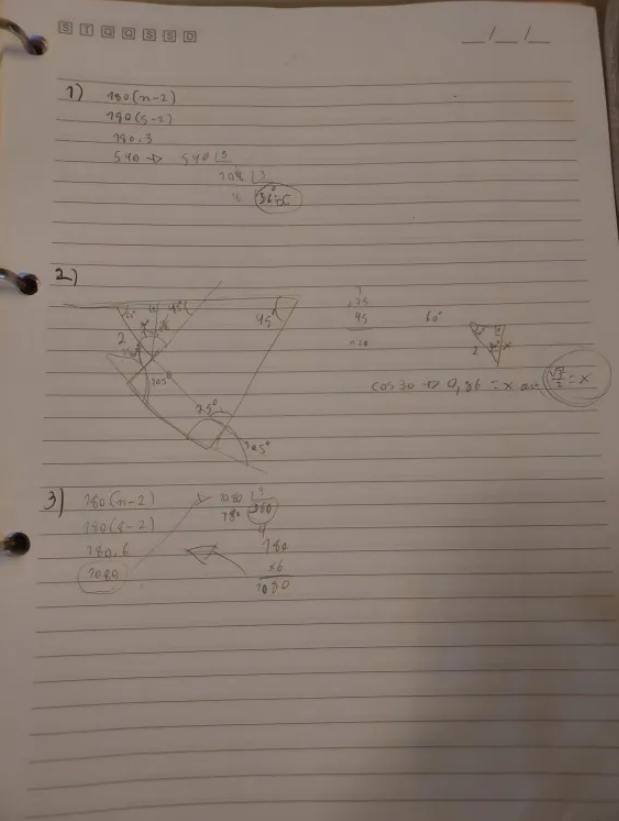 S T Q Q S S D
__/__/__
1) 180(n-2)
180(5-2)
180.3
540 → 540 5
108 3
36°
2)
45°
45°
2
105°
75°
105°
75
45
120
60°
2 x
cos 30 → 0,86 = x ou √3/2 = x
3) 180(n-2) → 1080 3
180(8-2) 180 360
180.6 180
1080 x6
1080